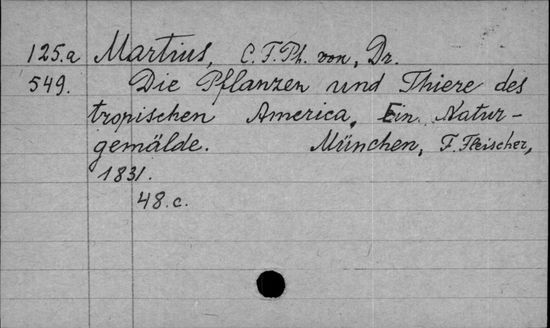 125.a Martius, C. F. Ph. von, Dr.
549. Die Pflanzen und Thiere des
tropischen America. Ein Natur-
gemälde. München, F. Fleischer,
1831.
48.c.